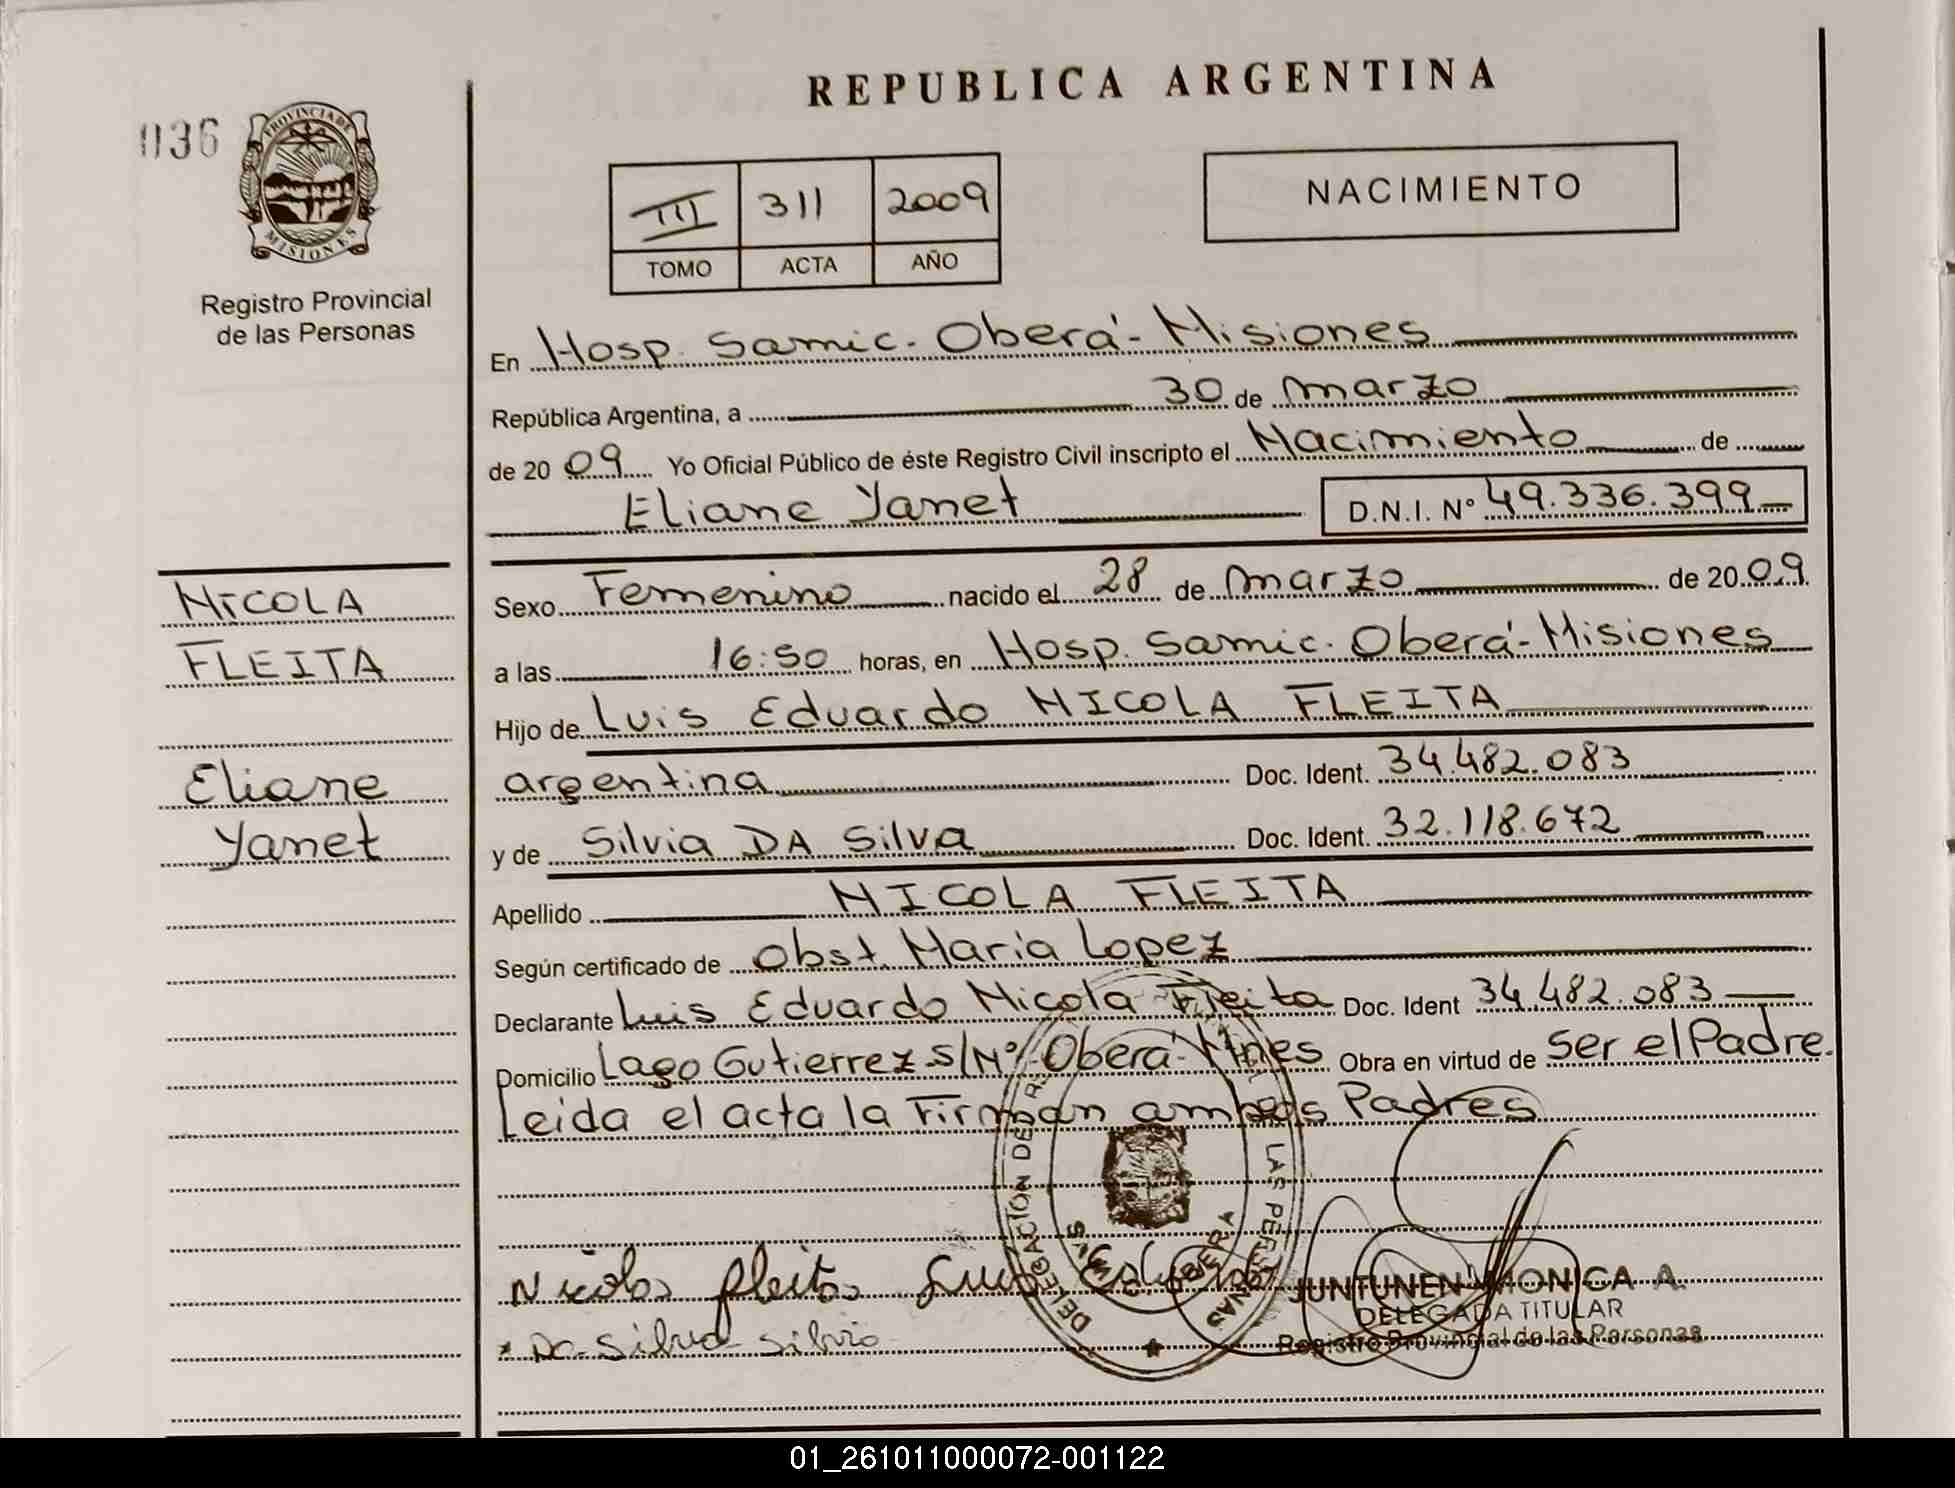 REPUBLICA ARGENTINA
036
PROVINCIA DE MISIONES
Registro Provincial
de las Personas
III 311 2009
TOMO ACTA AÑO
NACIMIENTO
En Hosp. Samic. Oberá - Misiones
República Argentina, a 30 de marzo
de 2009 Yo Oficial Público de éste Registro Civil inscripto el Nacimiento de
Eliane Yanet D.N.I. Nº 49.336.399
NICOLA
FLEITA
Eliane
Yanet
Sexo Femenino nacido el 28 de marzo de 2009
a las 16:50 horas, en Hosp. Samic. Oberá - Misiones
Hijo de Luis Eduardo NICOLA FLEITA
argentina Doc. Ident. 34.482.083
y de Silvia DA Silva Doc. Ident. 32.118.672
Apellido NICOLA FLEITA
Según certificado de Obst. Maria Lopez
Declarante Luis Eduardo Nicola Fleita Doc. Ident 34.482.083
Domicilio Lago Gutierrez S/Nº Oberá - Mnes Obra en virtud de Ser el Padre.
Leida el acta la Firman ambos Padres
DELEGACION DE LAS PERSONAS
Nicola fleita Luis
JUNTUNEN MONICA A.
DELEGADA TITULAR
Registro Provincial de las Personas
Da Silva Silvia
01_261011000072-001122